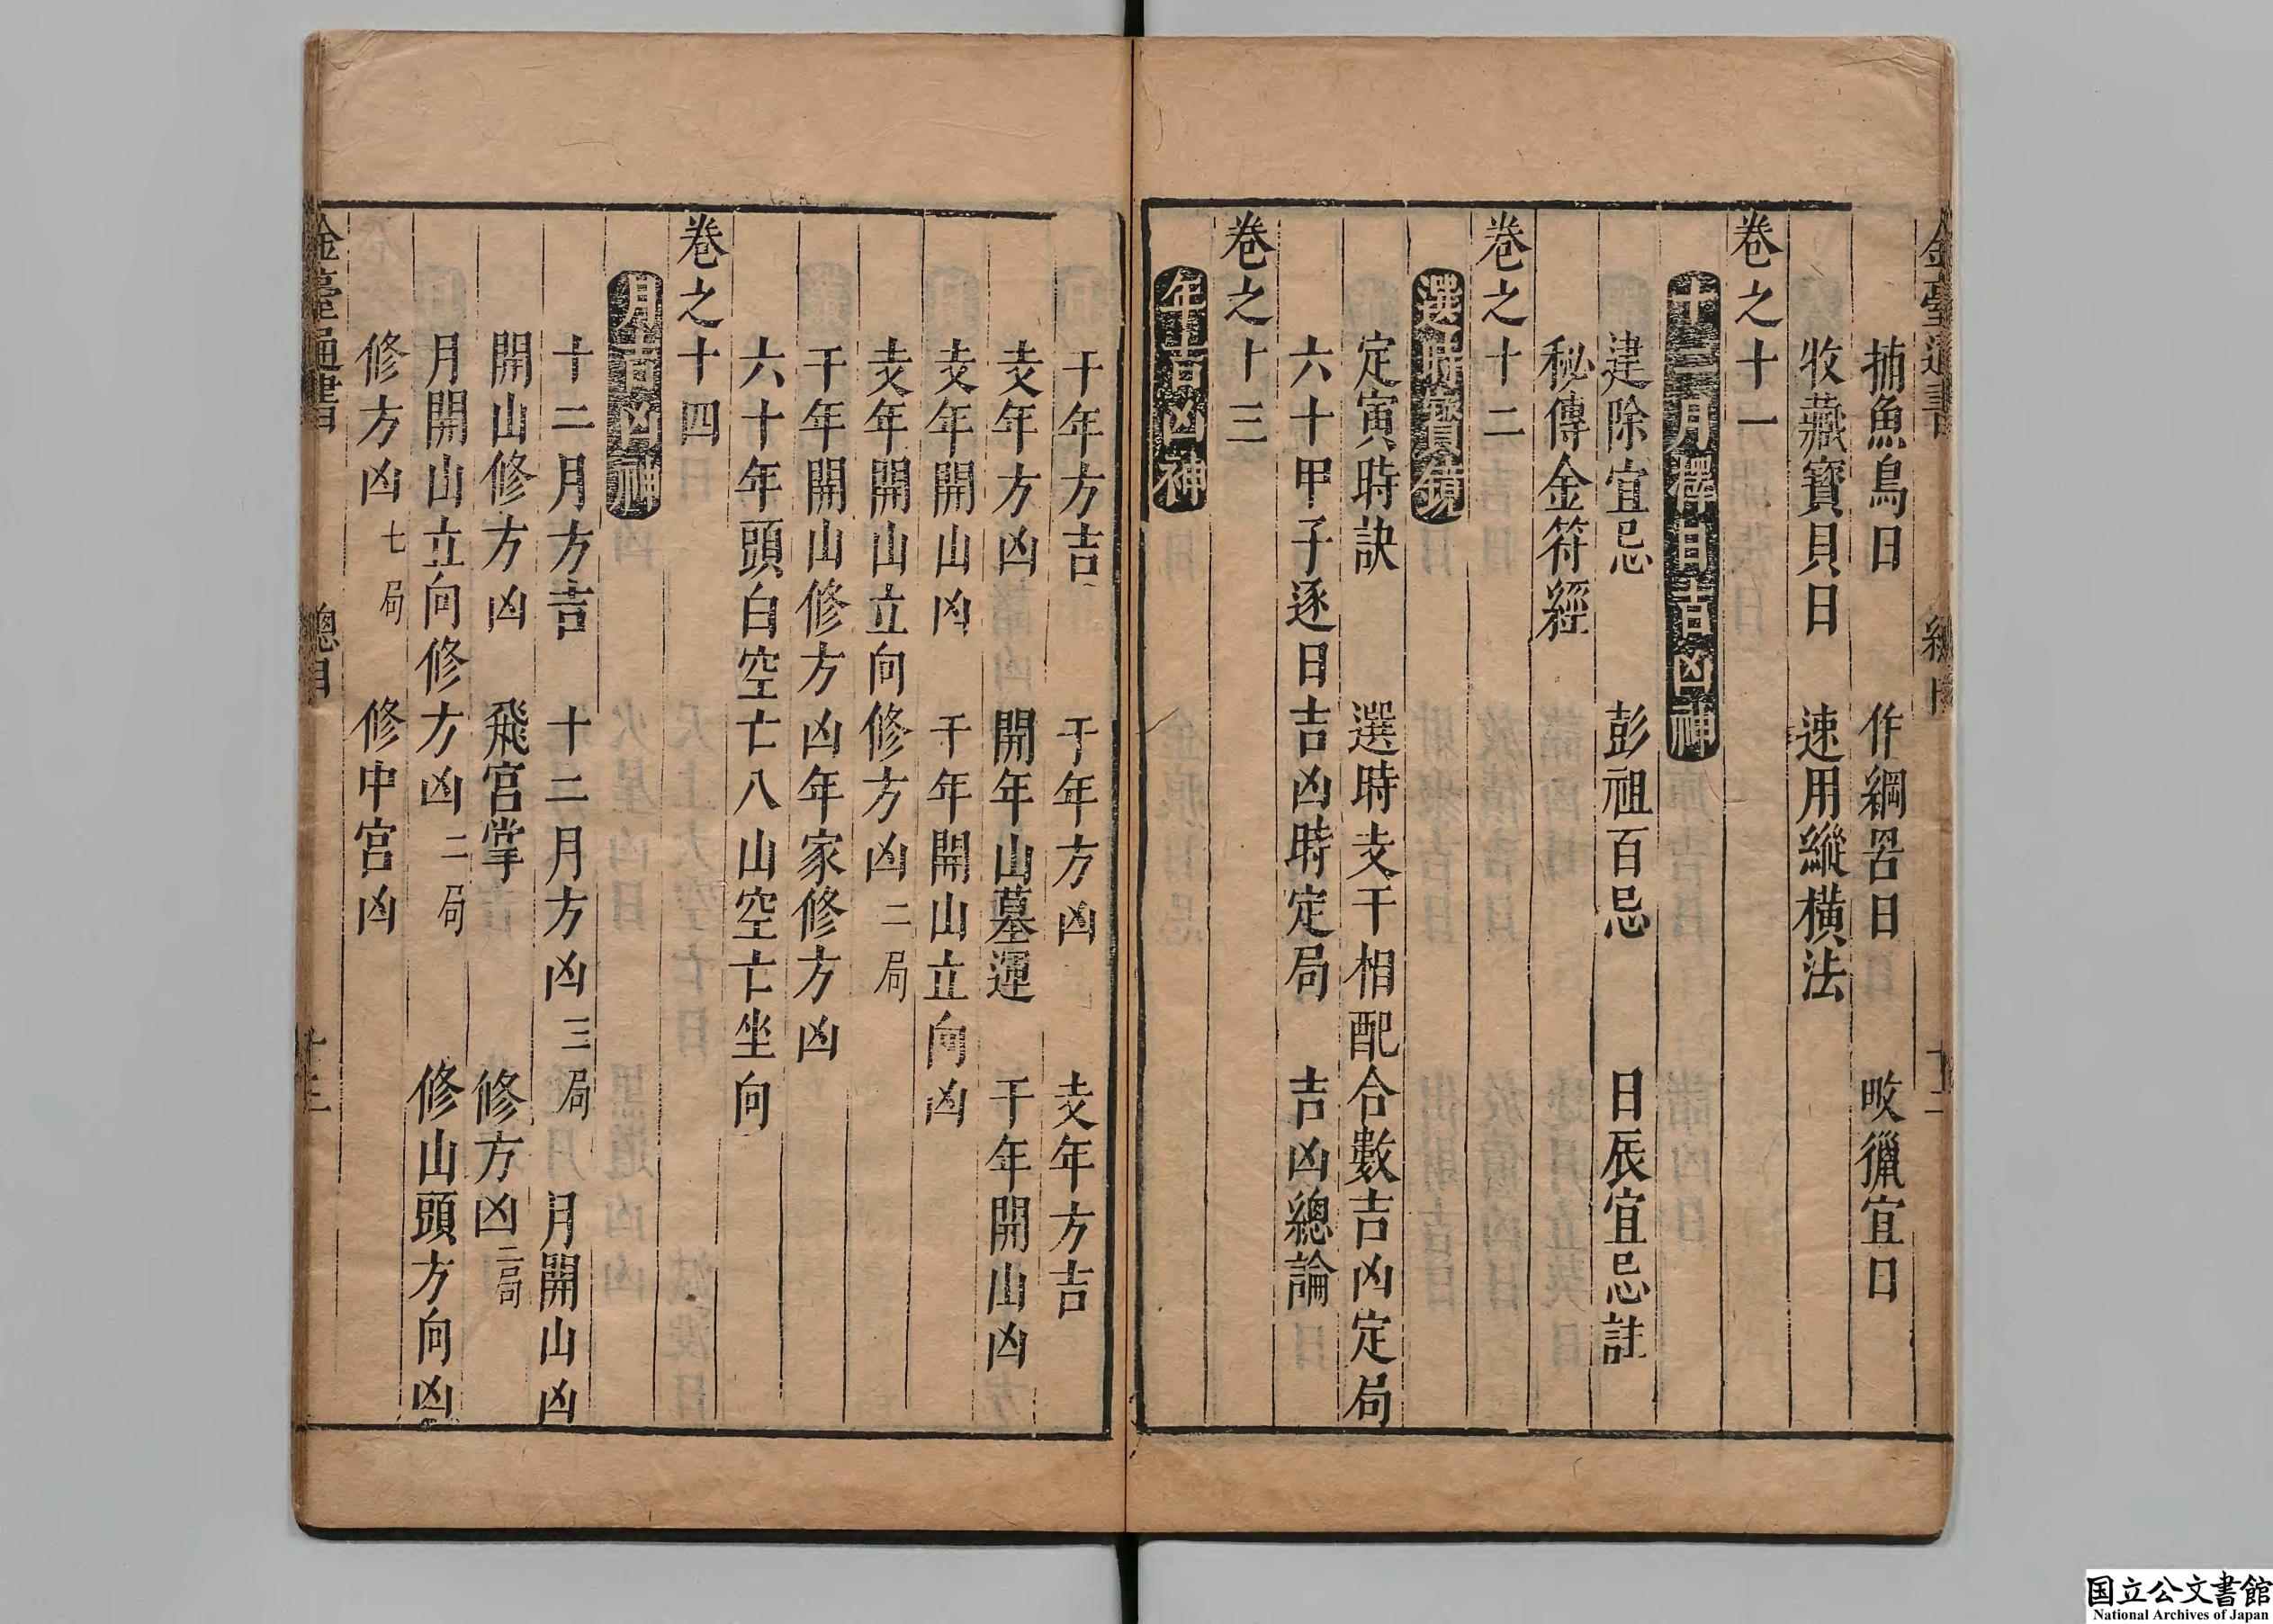 捕魚鳥日　作綱罟日　畋獵宜日
收藏寶貝日　速用縱橫法
卷之十一
十二月擇日吉凶神
建除宜忌　彭祖百忌　日辰宜忌註
秘傳金符經
卷之十二
選時寳鏡
定寅時訣　選時支干相配合數吉凶定局
六十甲子逐日吉凶時定局　吉凶總論
卷之十三
年吉凶神
干年方吉　干年方凶　支年方吉
支年方凶　開年山墓運　干年開山凶
支年開山凶　干年開山立向凶
支年開山立向修方凶二局
干年開山修方凶年家修方凶
六十年頭白空亡八山空亡坐向
卷之十四
月吉凶神
十二月方吉　十二月方凶三局　月開山凶
開山修方凶　飛宮掌　修方凶二局
月開山立向修方凶二局　修山頭方向凶
修方凶七局　修中宮凶
金臺通書　總目　十三
国立公文書館
National Archives of Japan